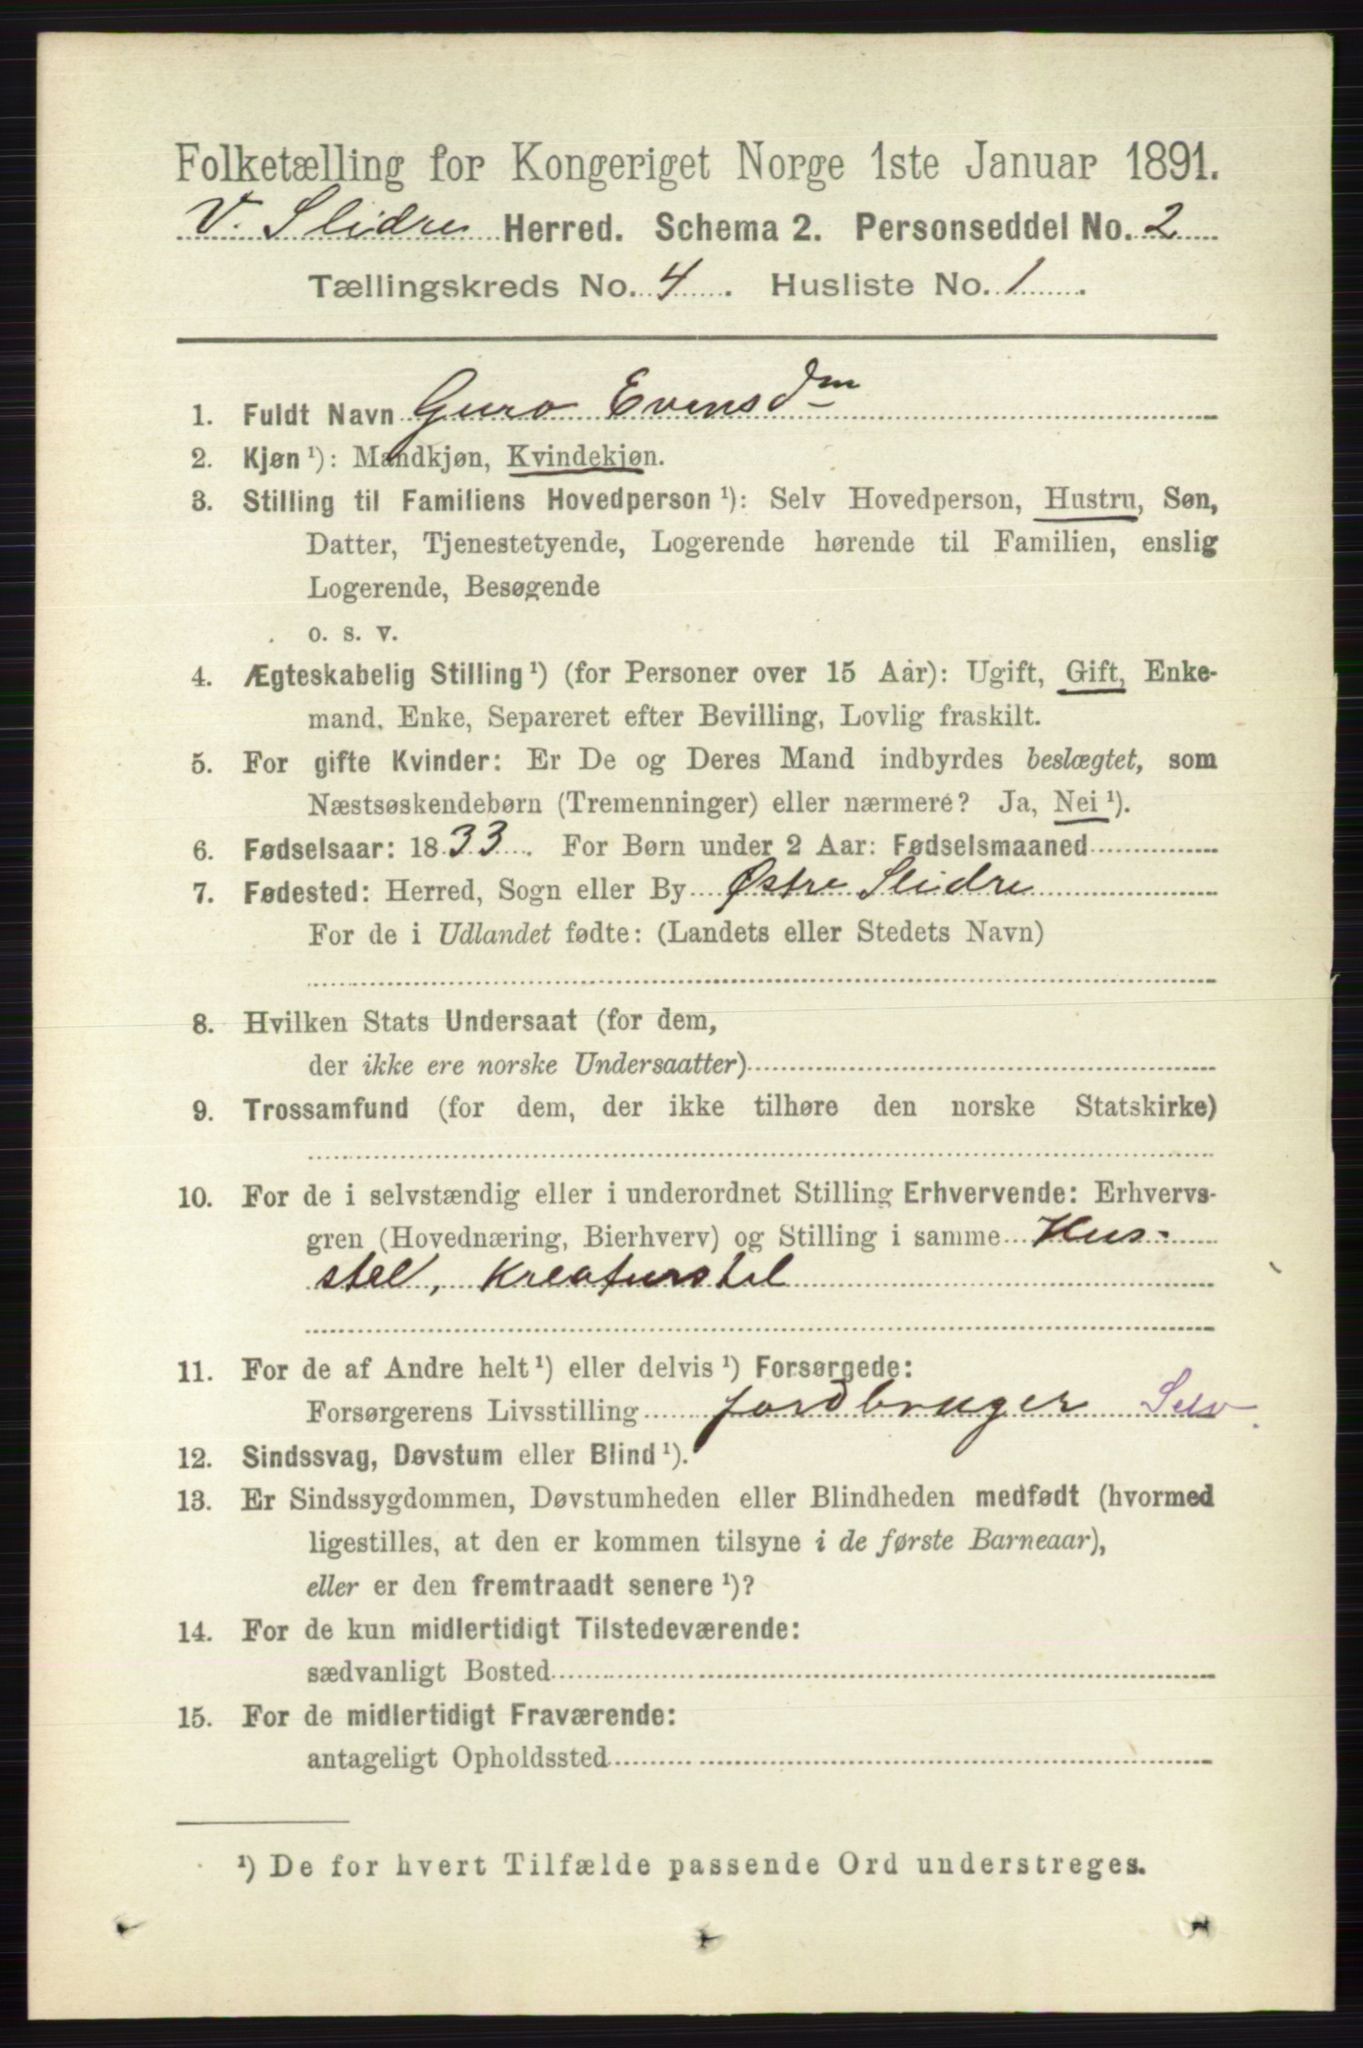 Folketælling for Kongeriget Norge 1ste Januar 1891.
V. Slidre Herred. Schema 2. Personseddel No. 2
Tællingskreds No. 4. Husliste No. 1.
1. Fuldt Navn Guro Evensdm
2. Kjøn ¹): Mandkjøn, Kvindekjøn.
3. Stilling til Familiens Hovedperson ¹): Selv Hovedperson, Hustru, Søn,
Datter, Tjenestetyende, Logerende hørende til Familien, enslig
Logerende, Besøgende
o. s. v.
4. Ægteskabelig Stilling ¹) (for Personer over 15 Aar): Ugift, Gift, Enke-
mand, Enke, Separeret efter Bevilling, Lovlig fraskilt.
5. For gifte Kvinder: Er De og Deres Mand indbyrdes beslægtet, som
Næstsøskendebørn (Tremenninger) eller nærmere? Ja, Nei ¹).
6. Fødselsaar: 1833. For Børn under 2 Aar: Fødselsmaaned
7. Fødested: Herred, Sogn eller By Østre Slidre
For de i Udlandet fødte: (Landets eller Stedets Navn)
8. Hvilken Stats Undersaat (for dem,
der ikke ere norske Undersaatter)
9. Trossamfund (for dem, der ikke tilhøre den norske Statskirke)
10. For de i selvstændig eller i underordnet Stilling Erhvervende: Erhvervs-
gren (Hovednæring, Bierhverv) og Stilling i samme Hus-
stel, Kreaturstel
11. For de af Andre helt ¹) eller delvis ¹) Forsørgede:
Forsørgerens Livsstilling jordbruger Selv.
12. Sindssvag, Døvstum eller Blind ¹).
13. Er Sindssygdommen, Døvstumheden eller Blindheden medfødt (hvormed
ligestilles, at den er kommen tilsyne i de første Barneaar),
eller er den fremtraadt senere ¹)?
14. For de kun midlertidigt Tilstedeværende:
sædvanligt Bosted
15. For de midlertidigt Fraværende:
antageligt Opholdssted
¹) De for hvert Tilfælde passende Ord understreges.